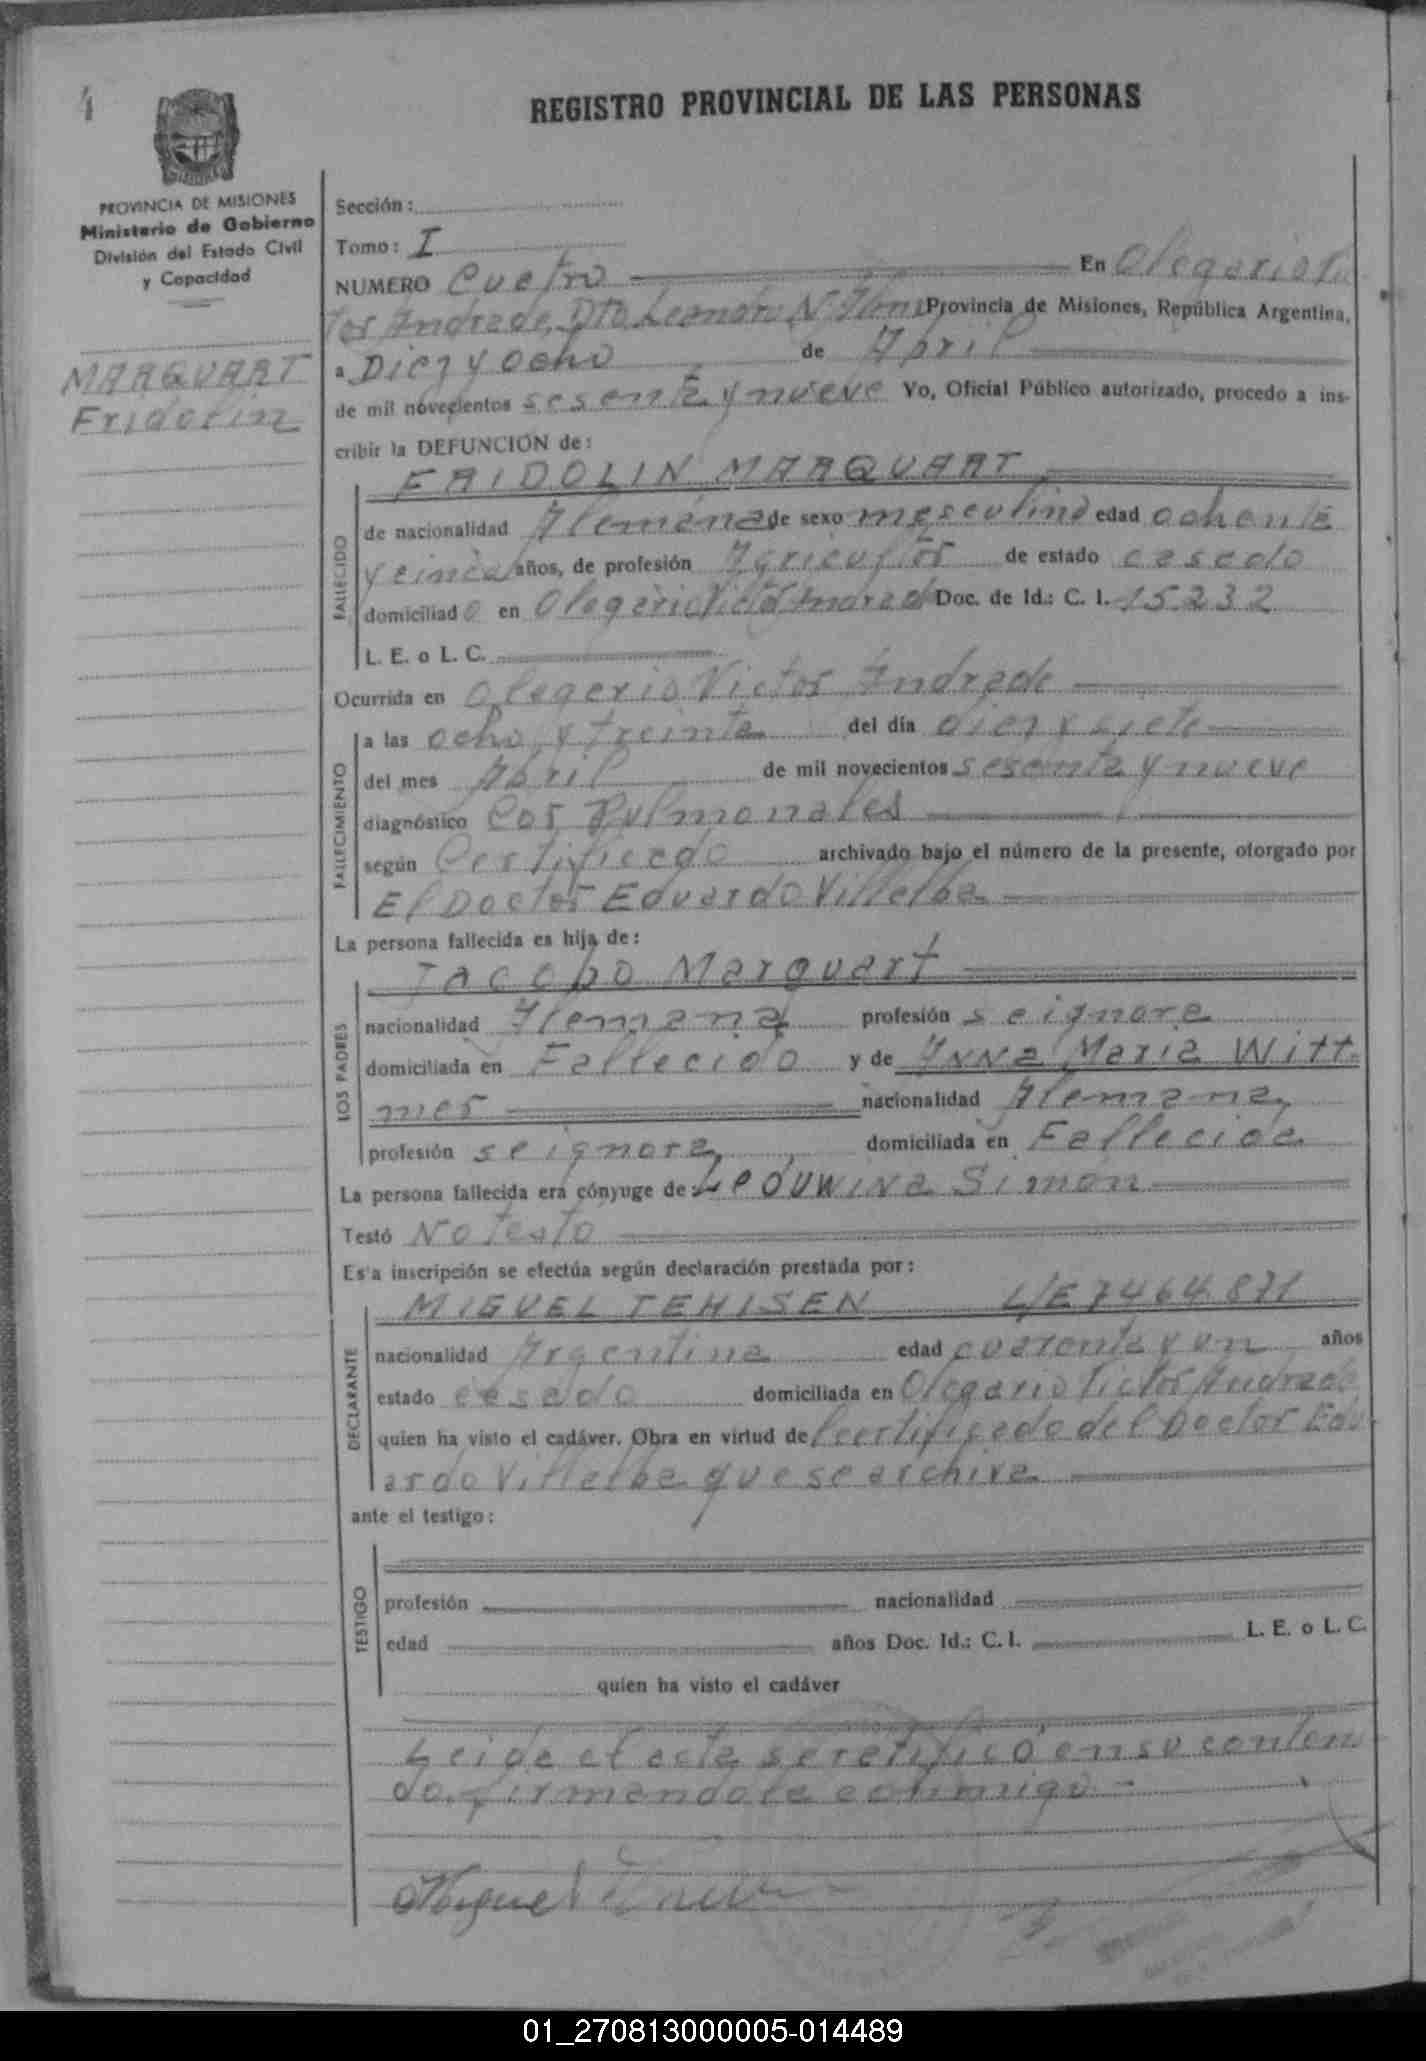 4
REGISTRO PROVINCIAL DE LAS PERSONAS
PROVINCIA DE MISIONES
Ministerio de Gobierno
División del Estado Civil
y Capacidad
MARQUART
Fridolin
Sección:
Tomo: I
NUMERO Cuatro En Olegario Vic
tor Andrade, Dto Leandro N. Alem Provincia de Misiones, República Argentina,
a Diez y ocho de Abril
de mil novecientos sesenta y nueve Yo, Oficial Público autorizado, procedo a ins-
cribir la DEFUNCIÓN de:
FRIDOLIN MARQUART
FALLECIDO
de nacionalidad Alemana de sexo masculino edad ochenta
y cinco años, de profesión Agricultor de estado casado
domiciliado en Olegario Victor Andrade Doc. de Id.: C. I. 15232
L. E. o L. C.
Ocurrida en Olegario Victor Andrade
FALLECIMIENTO
a las ocho y treinta del día diez y siete
del mes Abril de mil novecientos sesenta y nueve
diagnóstico Cor Pulmonales
según Certificado archivado bajo el número de la presente, otorgado por
El Doctor Eduardo Villalba
La persona fallecida es hija de:
LOS PADRES
Jacobo Marquart
nacionalidad Alemana profesión se ignora
domiciliada en Fallecido y de Anna Maria Witt
mer nacionalidad Alemana
profesión se ignora domiciliada en Fallecida
La persona fallecida era cónyuge de: Leduwina Simón
Testó No testó
Esta inscripción se efectúa según declaración prestada por:
DECLARANTE
MIGUEL TEHISEN L/E 7464.871
nacionalidad Argentina edad cuarenta y un años
estado casado domiciliada en Olegario Victor Andrade
quien ha visto el cadáver. Obra en virtud del certificado del Doctor Edu
ardo Villalba que se archiva
ante el testigo:
TESTIGO
profesión nacionalidad
edad años Doc. Id.: C. I. L. E. o L. C.
quien ha visto el cadáver
Leida el acta se retificó en su conteni
do, firmandola conmigo.-
Miguel
01_270813000005-014489